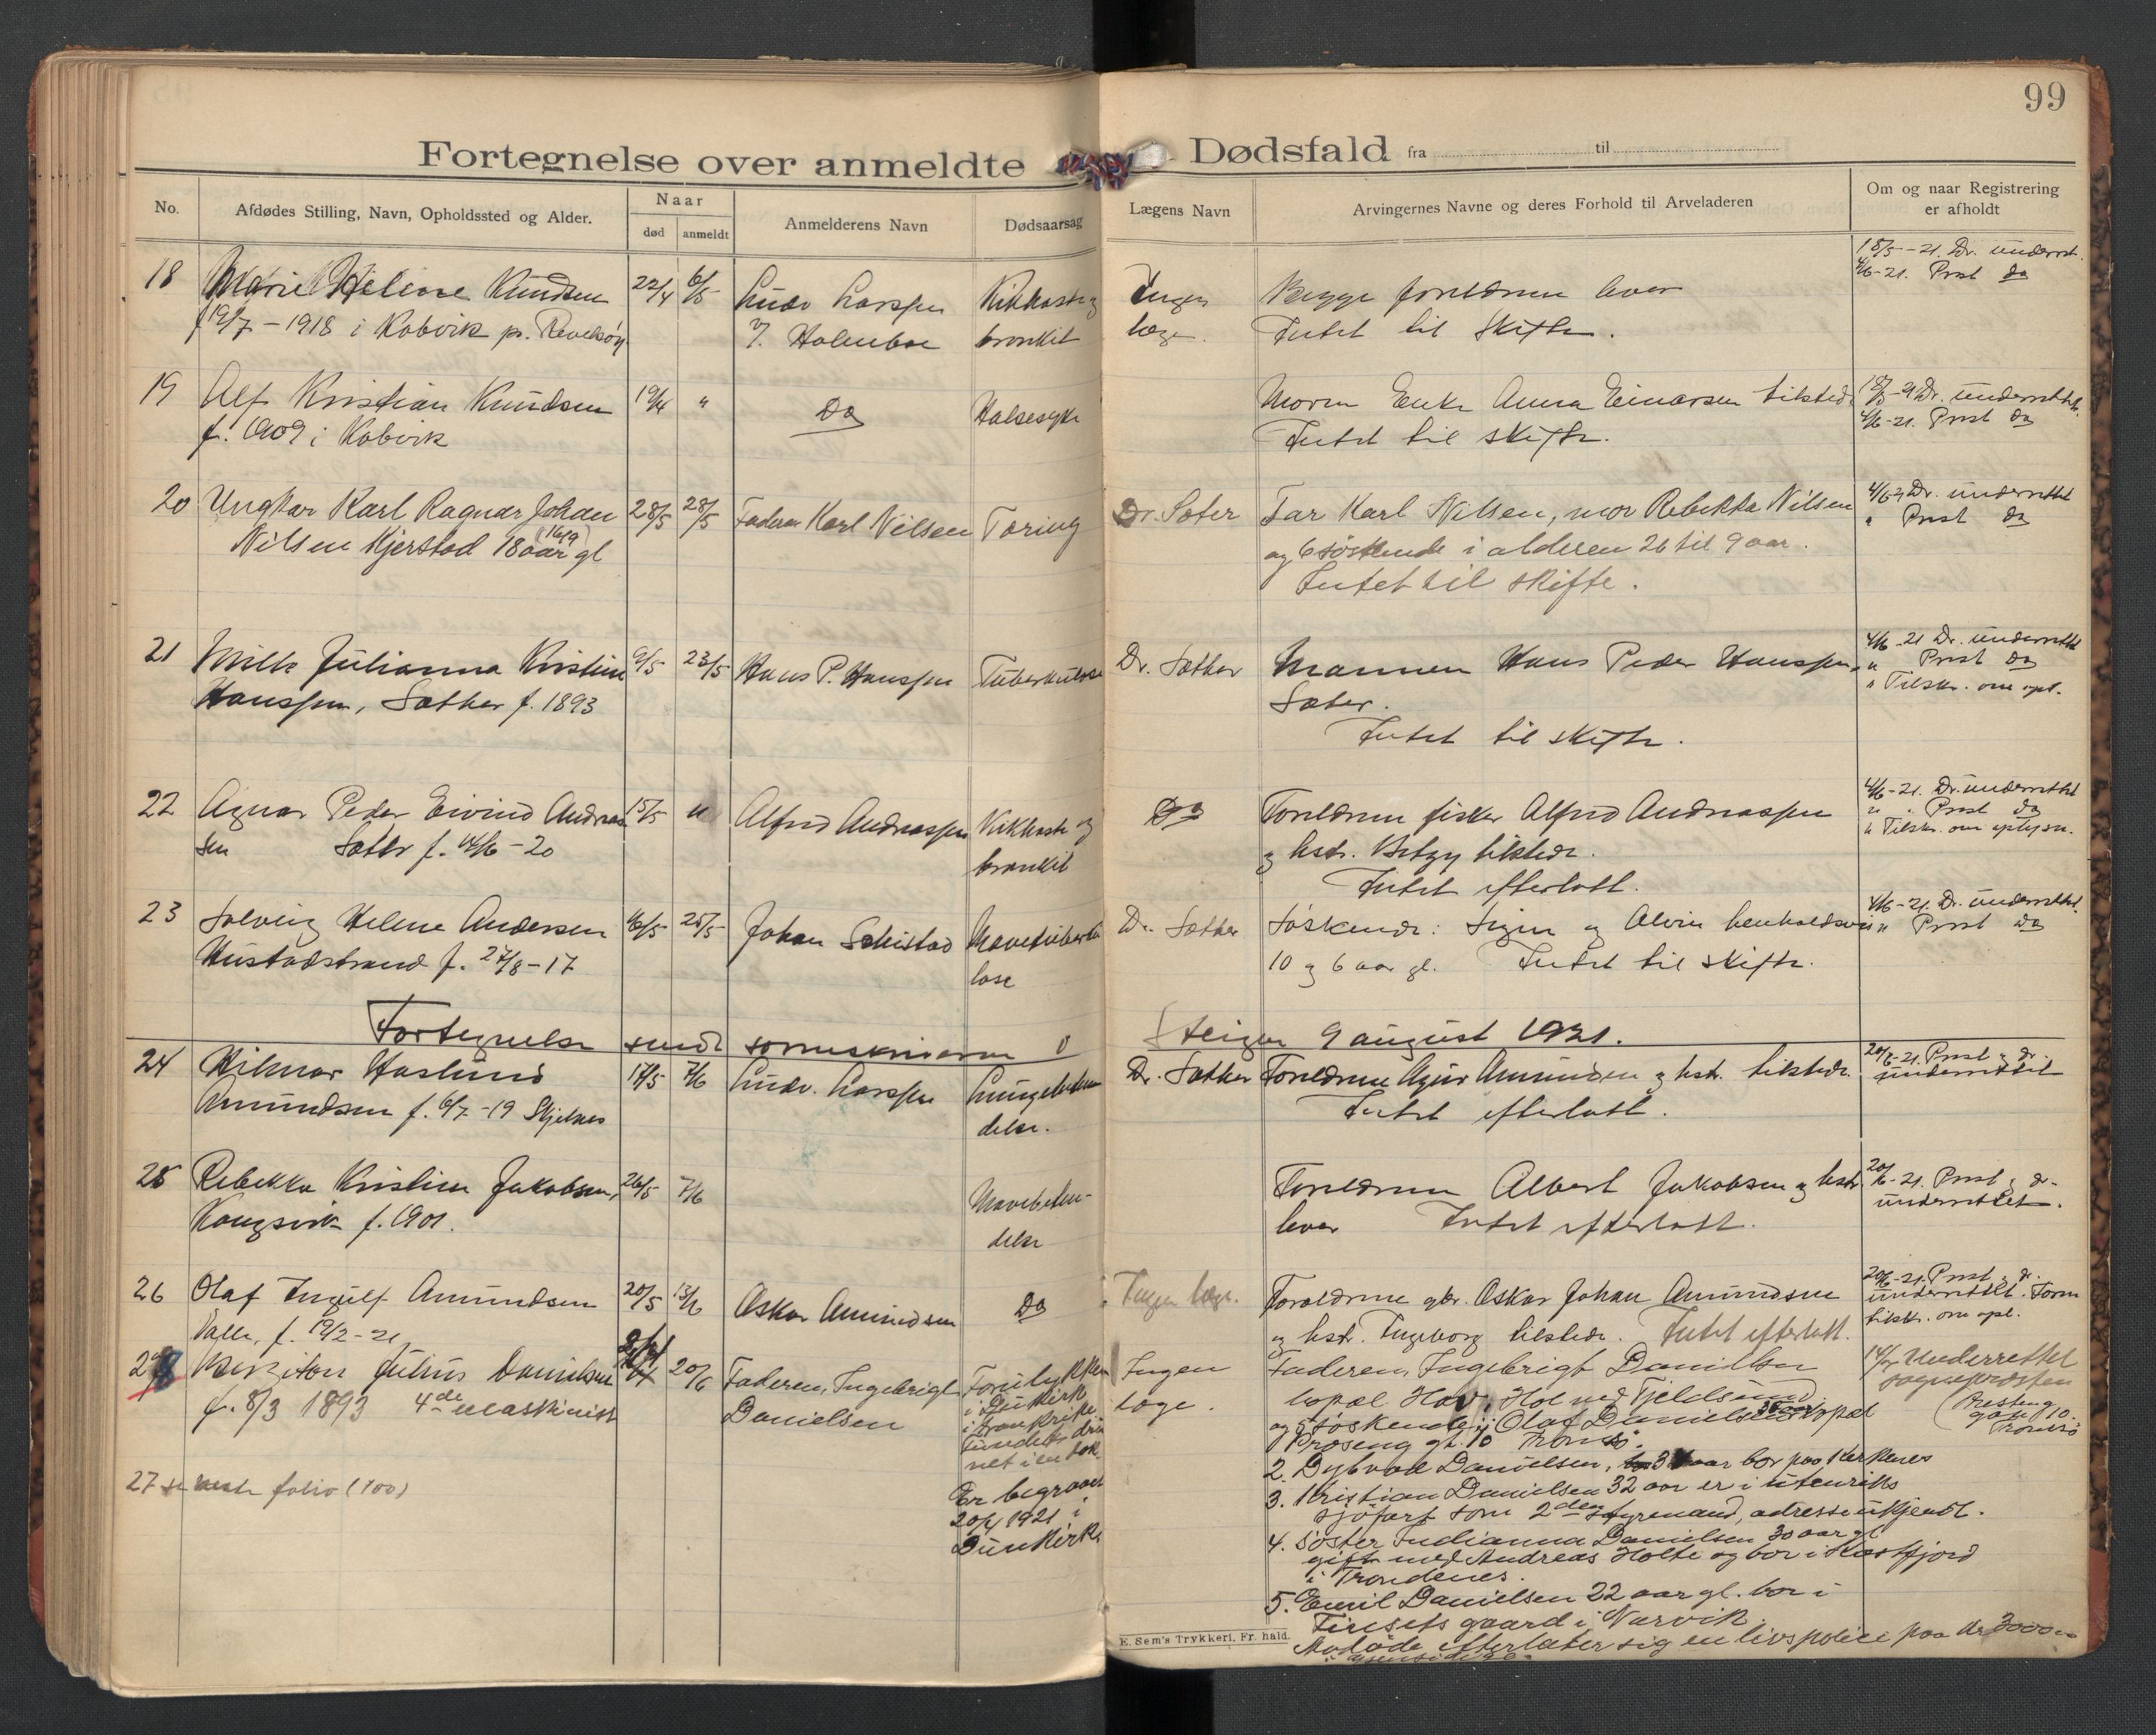 99
Fortegnelse over anmeldte Dødsfald fra til
No.
Afdødes Stilling, Navn, Opholdssted og Alder.
Naar
død
anmeldt
Anmelderens Navn
Dødsaarsag
Lægens Navn
Arvingernes Navne og deres Forhold til Arveladeren
Om og naar Registrering
er afholdt
18 Marie Helene Knudsen 22/4 6/5 Ludv Larssen Kikhoste og Ingen Begge foreldrene lever 18/5-21. Dr. underret.
f 19/7-1918 i Kobvik p. Holmboe bronkit læge. Intet til skifte. 4/6-21. Prest do
19 Alf Kristian Knudsen 19/4 " Do Halsesyke Moren Enke Anna Einarsen tilstede 18/5-21 Dr. underrettet.
f. 1909 i Kobvik Intet til skifte. 4/6-21. Prest do
20 Ungkar Karl Ragnar Johan 28/5 28/5 Faderen Karl Nilsen Tæring Dr. Sæter Far Karl Nilsen, mor Rebekka Nilsen 4/6 21 Dr. underrettet
Nilsen Kjerstad 18 aar gl og 6 søskende i alderen 26 til 9 aar. " Prest do
Intet til skifte.
21 Julianna Kristine 9/5 23/5 Hans P. Hanssen Tuberkulose Dr. Sæther Mannen Hans Peder Hanssen, 4/6-21 Dr. underrettet
Hanssen, Sæther f. 1893 Sæter. " Prest do
Intet til skifte. " Tilskr. om opl.
22 Agnar Peder Eivind Andreas 15/5 " Alfred Andreassen Kikhoste og Do Foreldrene fisker Alfred Andreassen 4/6-21. Dr. underrettet
sen Sæter f. 14/6-20 bronkit og hstr. Betzy tilstede. " Prest do
Intet efterlatt. " Tilskr. om oplysn.
23 Solveig Helene Andersen 16/5 25/5 Johan Schistad Mavetuberku Dr. Sæther Søskende: Signe og Alvin henholdsvis 4/6-21. Dr. underrettet.
Hustadstrand f. 27/8-17 lose 10 og 6 aar gl. Intet til skifte. " Prest do
Fortegnelse sendt sorenskriveren i Steigen 9 august 1921.
24 Hilmar Haslund 14/5 7/6 Ludv. Larssen Lungebeten Dr. Sæther Foreldrene Amundsen og hstr. tilstede. 20/6-21. Prest og dr.
Amundsen f. 6/7-19 Skjelnes delse. Intet efterlatt. underrettet
25 Rebekka Kristine Jakobsen, 26/5 7/6 Mavebeten- Foreldrene Albert Jakobsen og hstr. 20/6-21. Prest og dr.
Kongsvik f. 1901. delse lever Intet efterlatt. underrettet.
26 Olaf Ingulf Amundsen 20/5 13/6 Oskar Amundsen Do Ingen læge. Foreldrene gbr. Oskar Johan Amundsen 20/6-21. Prest og dr.
Valle, f. 19/2-21 og hstr. Ingeborg tilstede. Intet efterlatt. underrettet. Foren
tilskr. om opl.
28 Julius Danielsen 20/6 Faderen, Ingebrigt Forulykket Ingen Faderen, Ingebrigt Danielsen 14/7 Underrettet
f. 8/3 1893 4de Maskinist Danielsen i Dunkirk læge. bopæl Hol, Hol ved Tjeldsund sognepræsten
i Frankrike og 5 søskende: Olaf Danielsen bopæl
Fundet druk Præsteng gt. 10 Tromsø.
net i en dok. 2. Dybvad Danielsen, aar bor paa Kirkenes
Er begravet 3. Kristian Danielsen 32 aar er i utenriks
20/4 1921 i sjøfart som 2den styrmand, adresse ukjendt.
Dunkirk 4. Søster Indianna Danielsen 30 aar gl
gift med Andreas Holte og bor i Kasfjord
i Trondenes.
5. Emil Danielsen 22 aar gl. bor i
gaard i Narvik
Avdøde efterlater sig en livspolice paa kr 3000
(Presteng
gaten 10.
Tromsø
27 se neste folio (100)
E. Sem's Trykkeri, Fr.hald.